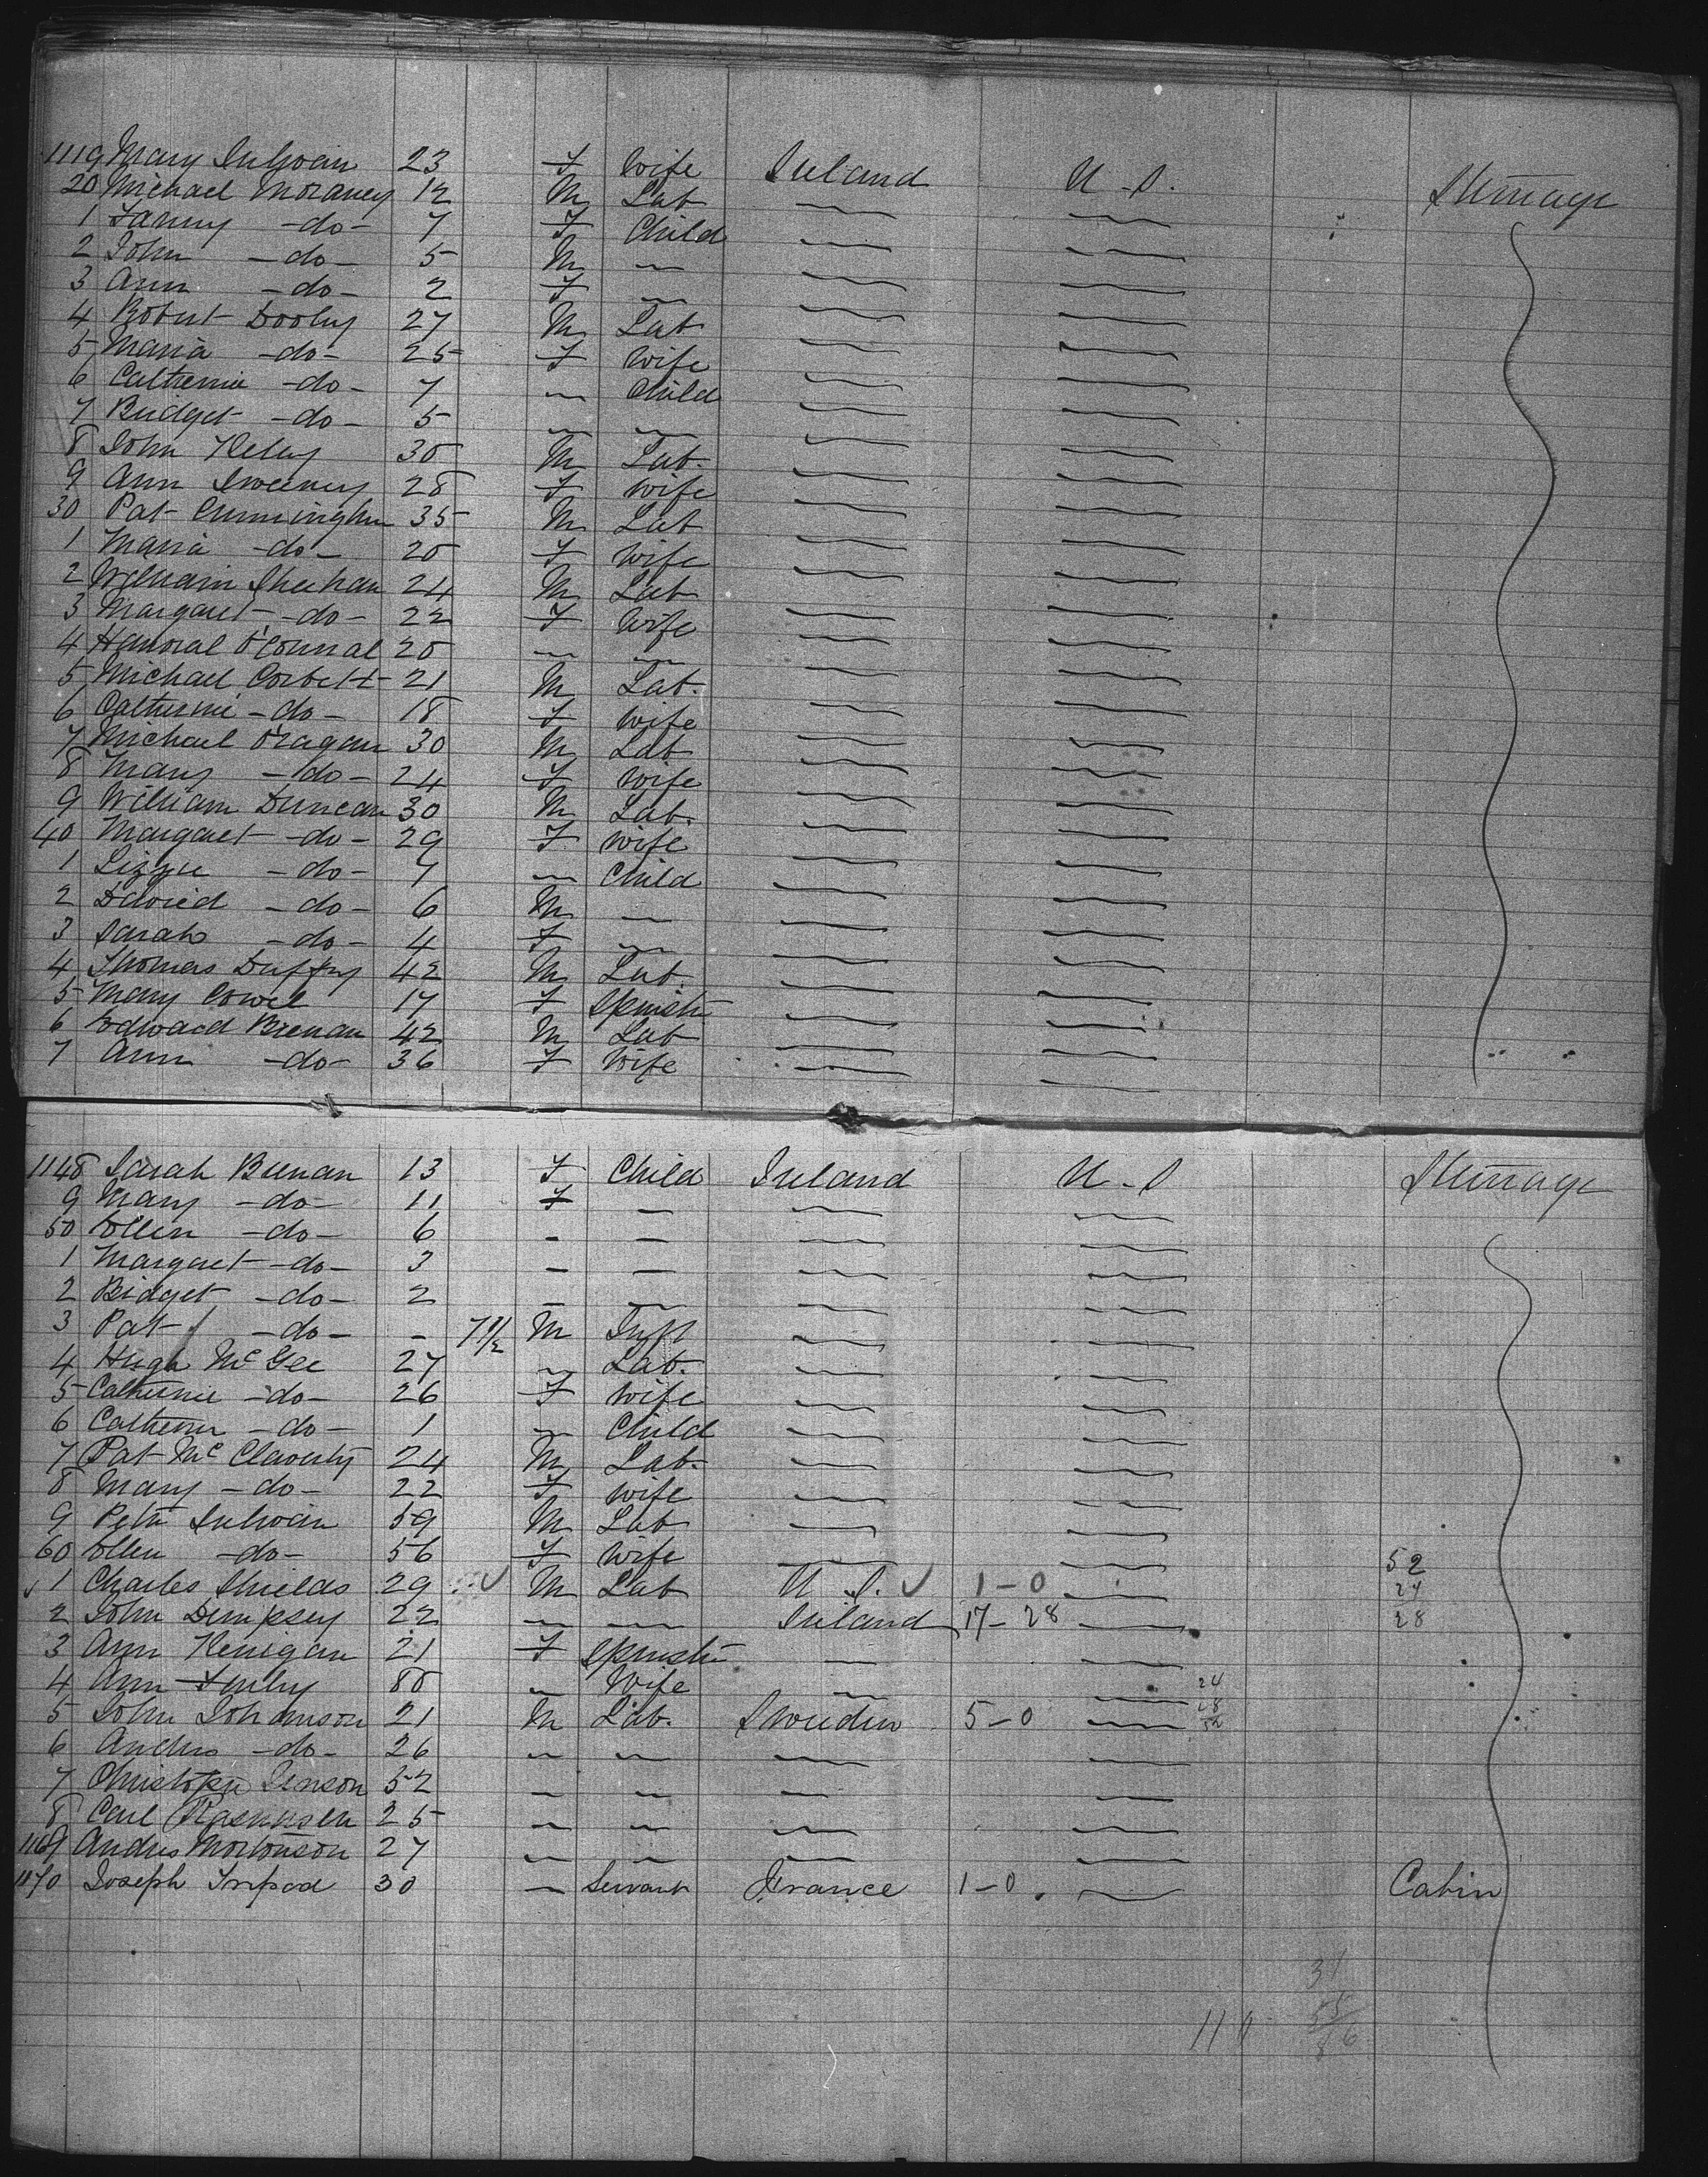 1119 Mary Sulivan 23 F Wife Ireland U.S. Steerage
20 Michael Moraney 12 M Lab
1 Fanny -do- 7 F Child
2 John -do- 5 M
3 Ann -do- 2 F
4 Robert Dooley 27 M Lab
5 Maria -do- 25 F Wife
6 Catherine -do- 7 Child
7 Bridget -do- 5
8 John Keley 30 M Lab.
9 Ann Sweeney 28 F Wife
30 Pat Cunningham 35 M Lab
1 Maria -do- 20 F Wife
2 William Sheehan 24 M Lab
3 Margaret -do- 22 F Wife
4 Hanoral O'Connal 20
5 Michael Corbett 21 M Lab.
6 Catherine -do- 18 F Wife
7 Michael O'Ragan 30 M Lab
8 Mary -do- 24 F Wife
9 William Duncan 30 M Lab.
40 Margaret -do- 29 F Wife
1 Lizzie -do- 7 Child
2 David -do- 6 M
3 Sarah -do- 4 F
4 Thomas Duffy 42 M Lab.
5 Mary Cowel 17 F Spinstr
6 Edward Brenan 42 M Lab
7 Ann -do- 36 F Wife
1148 Sarah Brenan 13 F Child Ireland U.S Steerage
9 Mary -do- 11 F
50 Ellen -do- 6
1 Margaret -do- 3
2 Bridget -do- 2
3 Pat -do- - M Inft
4 Hugh McGee 27 Lab.
5 Catherine -do- 26 F Wife
6 Cathern -do- 1 Child
7 Pat McClaverty 24 M Lab.
8 Mary -do- 22 F Wife
9 Peter Sulivan 59 M Lab
60 Ellen -do- 56 F Wife 52
1 Charles Shields 29 M Lab U.S. 1-0 24
2 John Dempsey 22 Ireland 17-28 28
3 Ann Kenigan 21 F Spinstr
4 Ann Farley 80 Wife 24
5 John Johanson 21 M Lab. Sweden 5-0 28 52
6 Andrs -do- 26
7 Christopr Jenson 52
8 Carl Rasmusen 25
1169 Andrs Mortonson 27
1170 Joseph Tripod 30 Servant France 1-0 Cabin
31
55